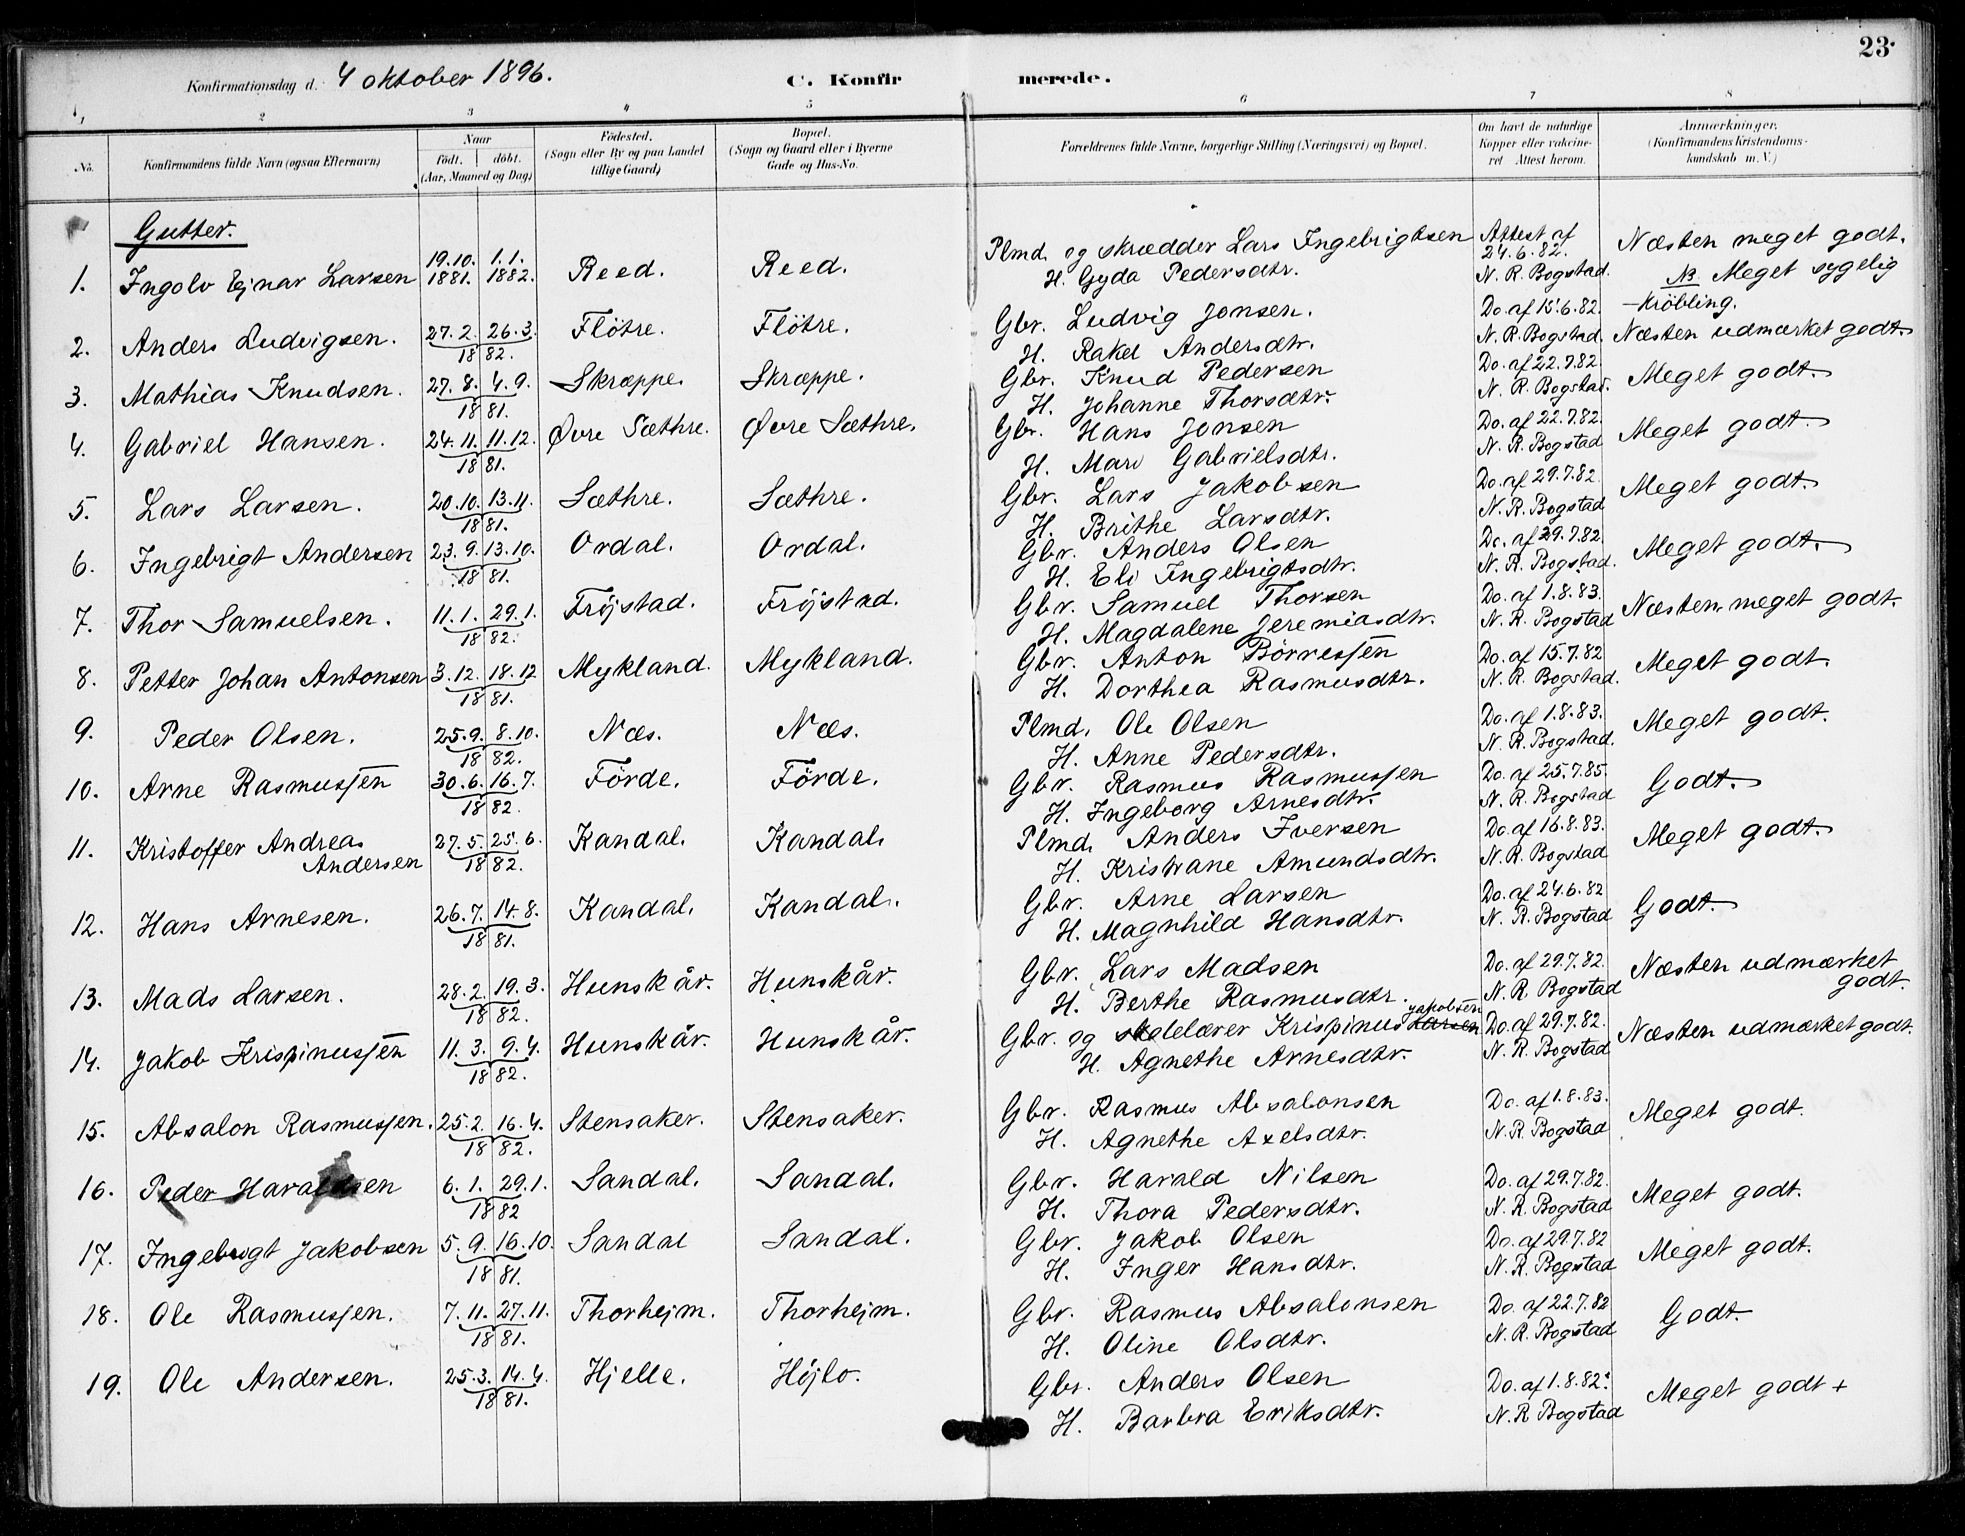 23
Konfirmationsdag d. 4 oktober 1896. C. Konfirmerede.
1 2 3 4 5 6 7 8
No. Konfirmandens fulde Navn (ogsaa Efternavn) Naar født. døbt. (Aar, Maaned og Dag) Fødested. (Sogn eller By og paa Landet tillige Gaard) Bopæl. (Sogn og Gaard eller i Byerne Gade og Hus-No. Forældrenes fulde Navne, borgerlige Stilling (Næringsvei) og Bopæl. Om havt de naturlige Kopper eller vakcineret Attest herom. Anmærkninger. (Konfirmandens Kristendomskundskab m. V.)
Gutter.
1. Ingolv Ejnar Larsen 19.10. 1881. 1.1. 1882. Reed. Reed. Plmd. og skrædder Lars Ingebrigtsen Attest af 24.6.82. Næsten meget godt.
H. Gyda Pedersdtr. N. R. Bogstad. NB. Meget sygelig – Krøbling.
2. Anders Ludvigsen. 27.2. 26.3. 1882. Fløtre. Fløtre. Gbr. Ludvig Jonsen. Do. af 15.6.82. Næsten udmærket godt.
H. Rakel Andersdtr. N. R. Bogstad.
3. Mathias Knudsen. 27.8. 4.9. 1881. Skræppe. Skræppe. Gbr. Knud Pedersen Do. af 22.7.82. Meget godt.
H. Johanne Thorsdtr. N. R. Bogstad.
4. Gabriel Hansen. 24.11. 11.12. 1881. Øvre Sæthre. Øvre Sæthre. Gbr. Hans Jonsen Do. af 22.7.82. Meget godt.
H. Mari Gabrielsdtr. N. R. Bogstad
5. Lars Larsen. 20.10. 13.11. 1881. Sæthre. Sæthre. Gbr. Lars Jakobsen Do. af 29.7.82. Meget godt.
H. Brithe Larsdtr. N. R. Bogstad
6. Ingebrigt Andersen 23.9. 13.10. 1881. Ordal. Ordal. Gbr. Anders Olsen Do. af 29.7.82. Meget godt.
H. Eli Ingebrigtsdtr. N. R. Bogstad.
7. Thor Samuelsen. 11.1. 29.1. 1882. Frøjstad. Frøjstad. Gbr. Samuel Thorsen Do. af 1.8.83. Næsten meget godt.
H. Magdalene Jeremiasdtr. N. R. Bogstad
8. Petter Johan Antonsen 3.12. 18.12 1881. Mykland. Mykland. Gbr. Anton Børresen Do. af 15.7.82 Meget godt.
H. Dorthea Rasmusdtr. N. R. Bogstad.
9. Peder Olsen. 25.9. 8.10. 1882. Næs. Næs. Plmd. Ole Olsen Do. af 1.8.83. Meget godt.
H. Anne Pedersdtr. N. R. Bogstad.
10. Arne Rasmussen 30.6. 16.7. 1882. Førde. Førde. Gbr. Rasmus Rasmussen Do. af 25.7.85. Godt.
H. Ingeborg Arnesdtr. N. R. Bogstad
11. Kristoffer Andreas Andersen 27.5. 25.6. 1882. Kandal. Kandal. Plmd. Anders Iversen Do. af 16.8.83. Meget godt.
H. Kristiane Amundsdtr. N. R. Bogstad
12. Hans Arnesen. 26.7. 14.8. 1881. Kandal. Kandal. Gbr. Arne Larsen Do. af 24.6.82 Godt.
H. Magnhild Hansdtr. N. R. Bogstad
13. Mads Larsen. 28.2. 19.3. 1882. Hunskår. Hunskår. Gbr. Lars Madsen Do. af 29.7.82. Næsten udmærket godt.
H. Berthe Rasmusdtr. N. R. Bogstad
14. Jakob Krispinussen 11.3. 9.4. 1882. Hunskår. Hunskår. Gbr. og skolelærer Krispinus Larsen Jakobsen Do. af 29.7.82. Næsten udmærket godt.
H. Agnethe Arnesdtr. N. R. Bogstad
15. Absalon Rasmussen. 25.2. 16.4. 1882. Stensaker. Stensaker. Gbr. Rasmus Absalonsen Do. af 1.8.83. Meget godt.
H. Agnethe Axelsdtr. N. R. Bogstad
16. Peder Haraldsen 6.1. 29.1. 1882 Sandal. Sandal. Gbr. Harald Nilsen Do. af 29.7.82. Meget godt.
H. Thora Pedersdtr. N. R. Bogstad
17. Ingebrigt Jakobsen 5.9. 16.10. 1881. Sandal Sandal. Gbr. Jakob Olsen Do. af 29.7.82 Meget godt.
H. Inger Hansdtr. N. R. Bogstad
18. Ole Rasmussen. 7.11. 27.11. 1881. Thorhejm. Thorhejm. Gbr. Rasmus Absalonsen Do. af 22.7.82 Godt.
H. Oline Olsdtr. N. R. Bogstad
19. Ole Andersen. 25.3. 14.4. 1881. Hjelle. Højlo. Gbr. Anders Olsen Do. af 1.8.82. Meget godt +
H. Barbra Eriksdtr. N. R Bogstad